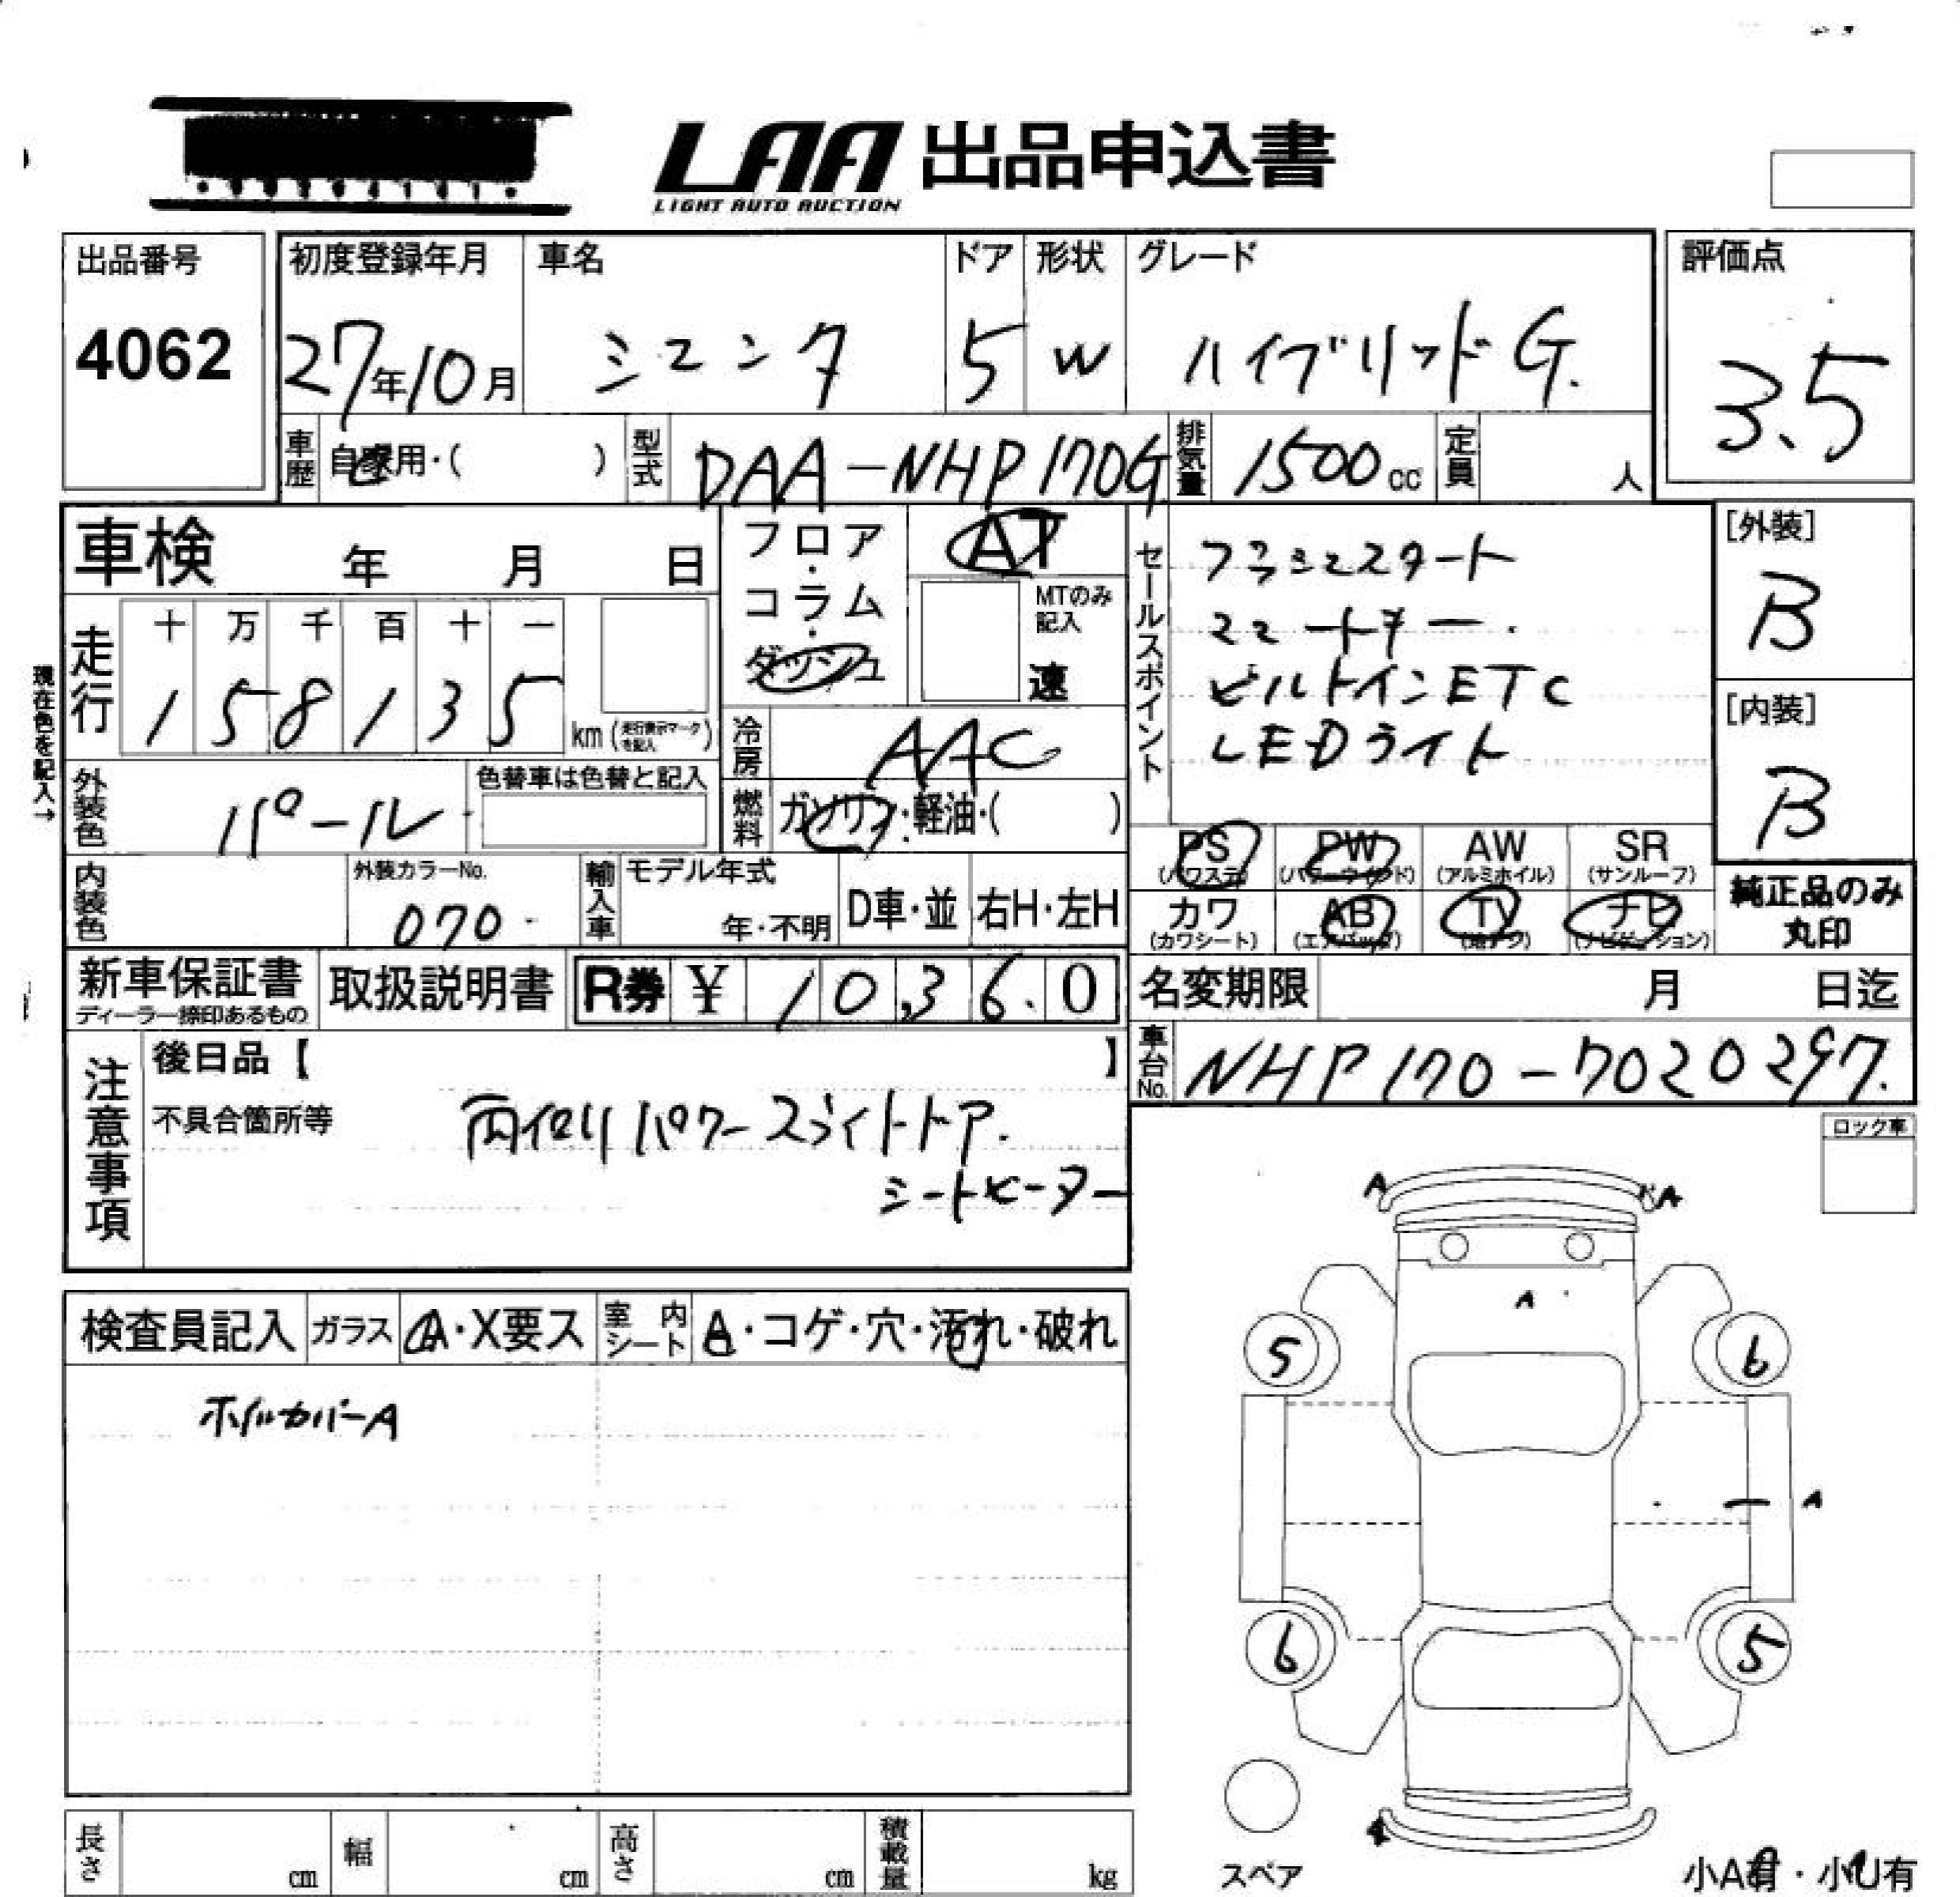 LAA 出品申込書
LIGHT AUTO AUCTION
出品番号
4062
初度登録年月
27年10月
車名
シエンタ
ドア
5
形状
W
グレード
ハイブリッドG.
評価点
3.5
車歴
自家用・( )
型式
DAA-NHP170G
排気量
1500cc
定員
人
車検 年 月 日
フロア・コラム・ダッシュ
AT
MTのみ記入
速
セールスポイント
プッシュスタート
スマートキー.
ビルトインETC
LEDライト
[外装]
B
[内装]
B
現在色を記入→
走行
十 万 千 百 十 一
1 5 8 1 3 5
km (走行表示マークを記入)
冷房
AAC
外装色
パール
色替車は色替と記入
燃料
ガソリン・軽油・( )
PS (パワステ)
PW (パワーウインド)
AW (アルミホイル)
SR (サンルーフ)
カワ (カワシート)
AB (エアバッグ)
TV (地デジ)
ナビ (ナビゲーション)
純正品のみ
丸印
内装色
外装カラーNo.
070
輸入車
モデル年式
年・不明
D車・並
右H・左H
新車保証書
ディーラー捺印あるもの
取扱説明書
R券 ¥ 10,36.0
名変期限 月 日迄
車台No.
NHP170-7020297.
注意事項
後日品【 】
不具合箇所等
両側パワースライドドア.
シートヒーター
ロック車
検査員記入
ガラス
A・X要ス
室内シート
A・コゲ・穴・汚れ・破れ
ホイルカバーA
A A
A
5 6
A
6 5
スペア
小A有・小U有
長さ cm
幅 cm
高さ cm
積載量 kg